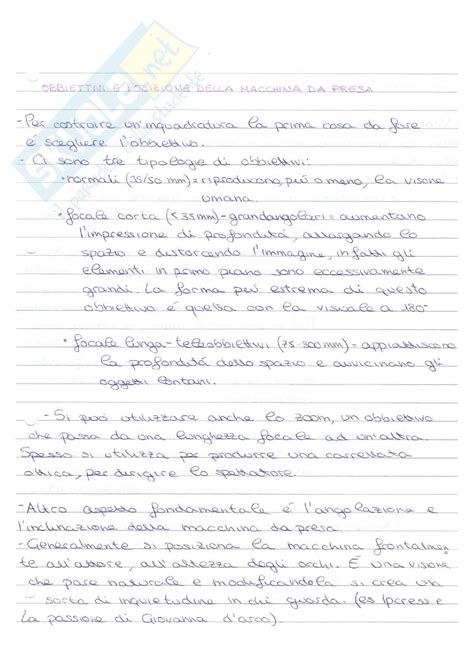 OBBIETTIVI E POSIZIONE DELLA MACCHINA DA PRESA
- Per costruire un'inquadratura la prima cosa da fare
é scegliere l'obbiettivo.
- Ci sono tre tipologie di obbiettivi:
• normali (35/50 mm) = riproducono, più o meno, la visone
umana.
• focale corta (<35mm) - grandangolari = aumentano
l'impressione di profondità, allargando lo
spazio e distorcendo l'immagine, infatti gli
elementi in primo piano sono eccessivamente
grandi. La forma più estrema di questo
obbiettivo é quella con la visuale a 180°
• focale lunga - teleobbiettivi (75-300mm) = appiattiscono
la profondità dello spazio e avvicinano gli
oggetti lontani.
- Si può utilizzare anche lo zoom, un obbiettivo
che passa da una lunghezza focale ad un'altra.
Spesso si utilizza per produrre una carrellata
ottica, per dirigere lo spettatore.
- Altro aspetto fondamentale é l'angolazione e
l'inclinazione della macchina da presa.
- Generalmente si posiziona la macchina frontalmen-
te all'attore, all'altezza degli occhi. É una visone
che pare naturale e modificandola si crea una
sorta di inquietudine in chi guarda. (es Ipcress e
La passione di Giovanna d'arco).